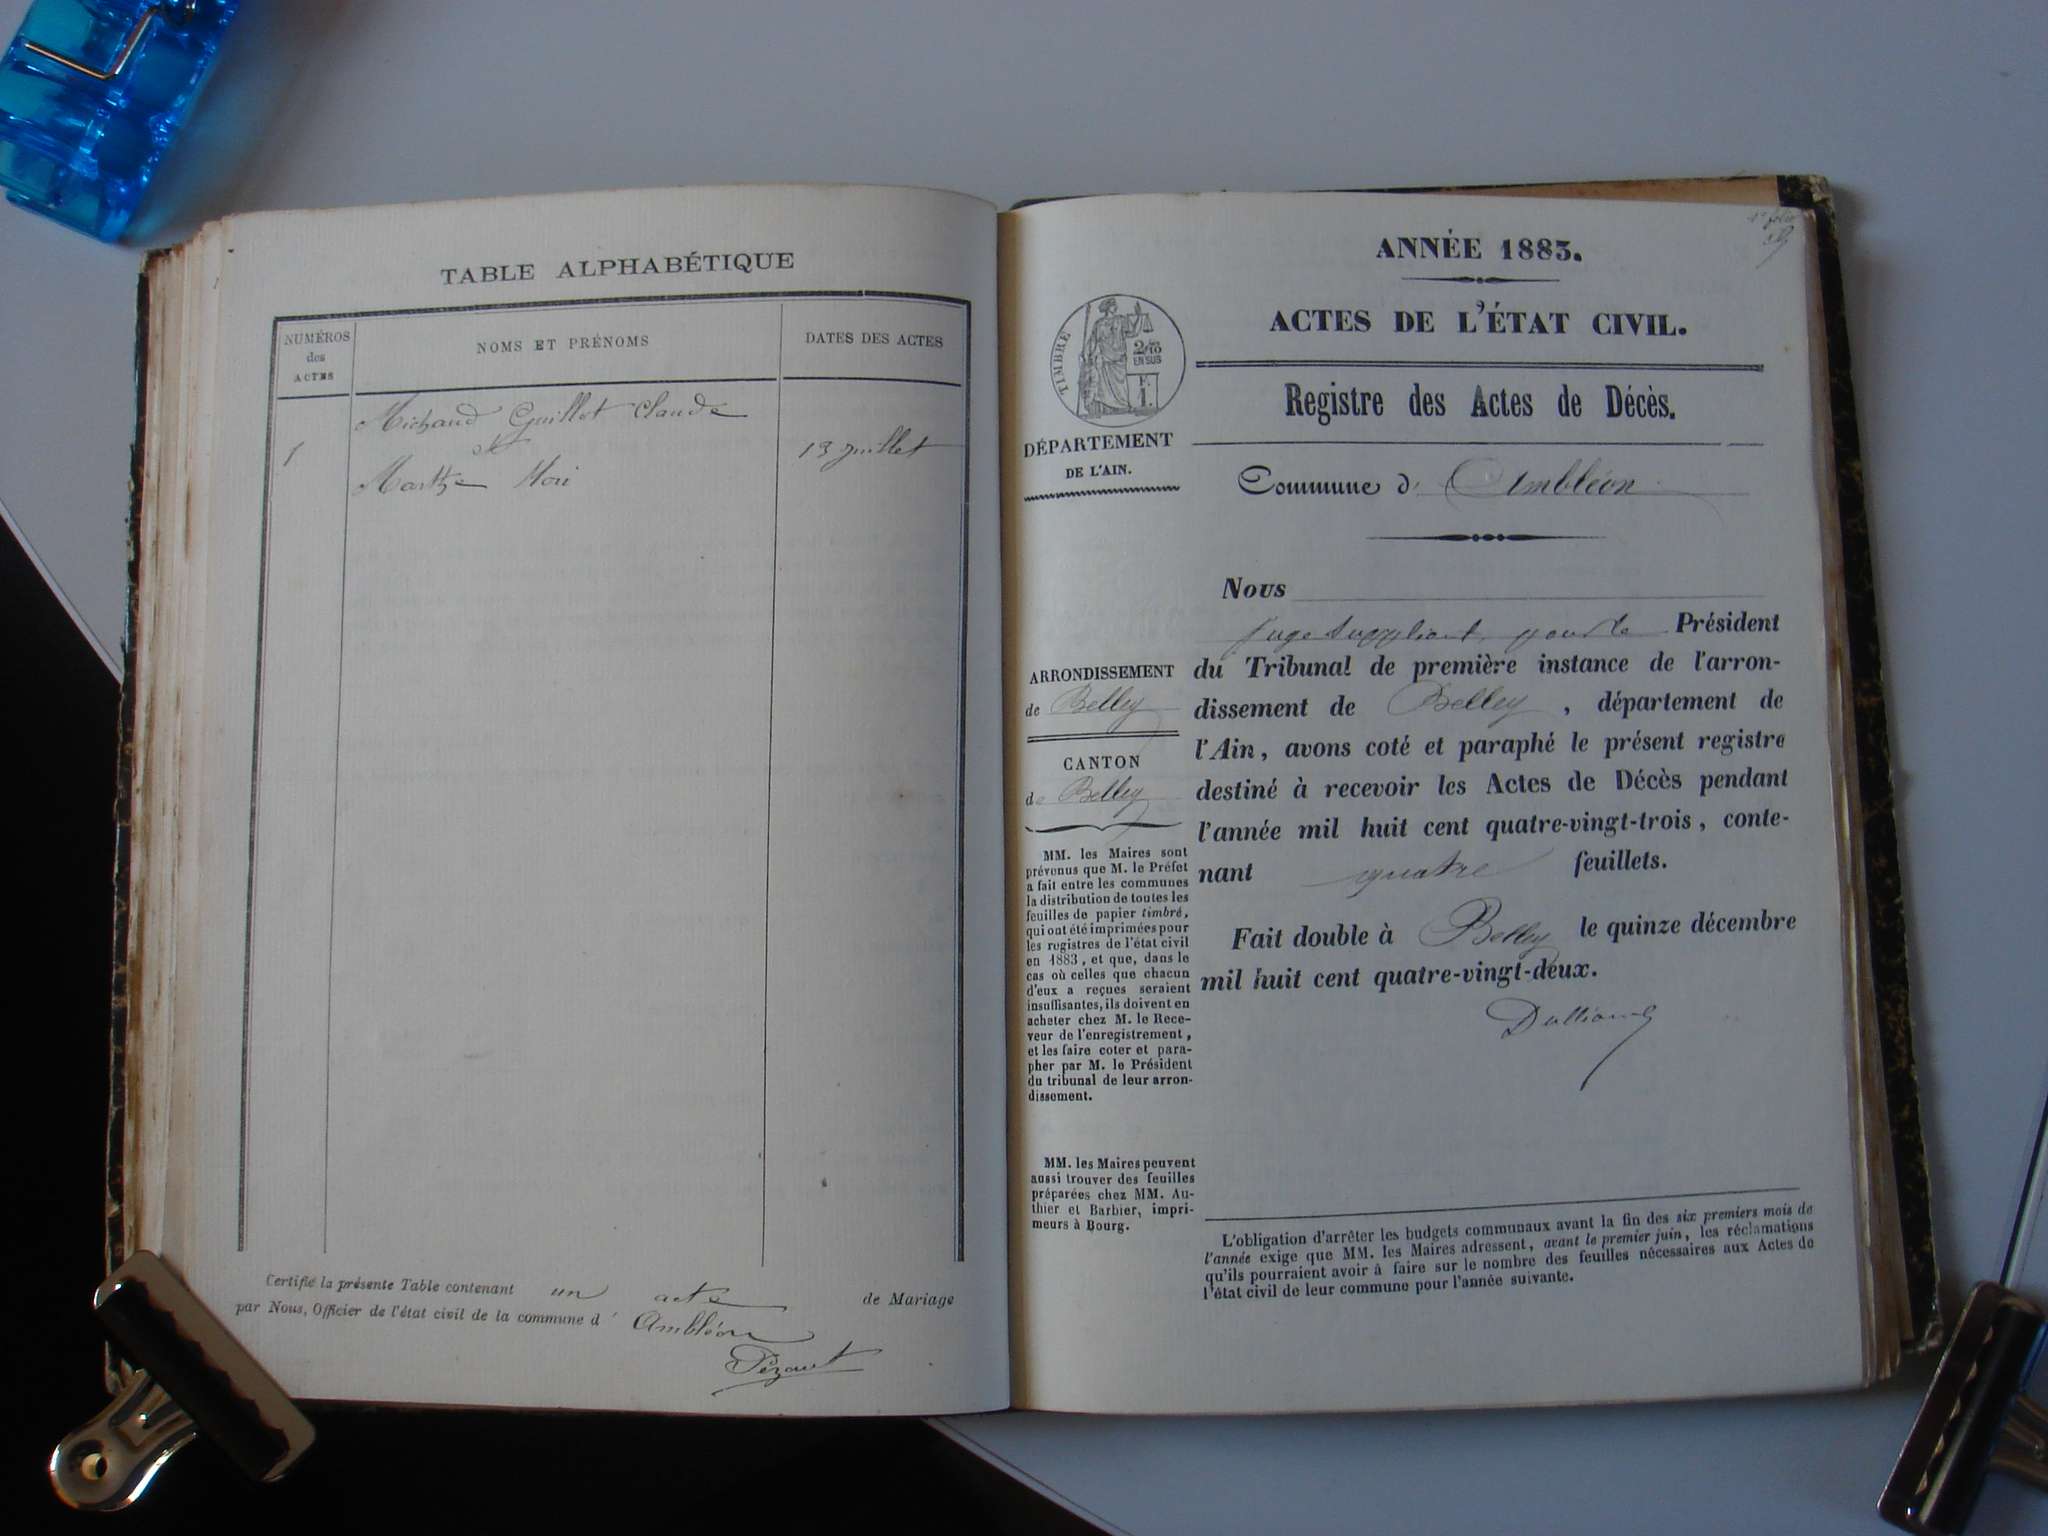 TABLE ALPHABÉTIQUE
NUMÉROS
des
ACTES
NOMS ET PRÉNOMS
DATES DES ACTES
Michaud Guillot Claude
et
1
13 Juillet
Marthe
Certifié la présente Table contenant un acte de Mariage
par Nous, Officier de l'état civil de la commune d' Ambléon
1er folio
ANNÉE 1883.
ACTES DE L'ÉTAT CIVIL.
TIMBRE
2/10
EN SUS
F.
1.
Registre des Actes de Décès.
DÉPARTEMENT
DE L'AIN.
Commune d' Ambléon
Nous
juge suppléant, pour le Président
du Tribunal de première instance de l'arron-
dissement de Belley, département de
l'Ain, avons coté et paraphé le présent registre
destiné à recevoir les Actes de Décès pendant
l'année mil huit cent quatre-vingt-trois, conte-
nant quatre feuillets.
Fait double à Belley le quinze décembre
mil huit cent quatre-vingt-deux.
ARRONDISSEMENT
de Belley
CANTON
de Belley
MM. les Maires sont
prévenus que M. le Préfet
a fait entre les communes
la distribution de toutes les
feuilles de papier timbré,
qui ont été imprimées pour
les registres de l'état civil
en 1883, et que, dans le
cas où celles que chacun
d'eux a reçues seraient
insuffisantes, ils doivent en
acheter chez M. le Rece-
veur de l'enregistrement,
et les faire coter et para-
pher par M. le Président
du tribunal de leur arron-
dissement.
MM. les Maires peuvent
aussi trouver des feuilles
préparées chez MM. Au-
thier et Barbier, impri-
meurs à Bourg.
L'obligation d'arrêter les budgets communaux avant la fin des six premiers mois de
l'année exige que MM. les Maires adressent, avant le premier juin, les réclamations
qu'ils pourraient avoir à faire sur le nombre des feuilles nécessaires aux Actes de
l'état civil de leur commune pour l'année suivante.